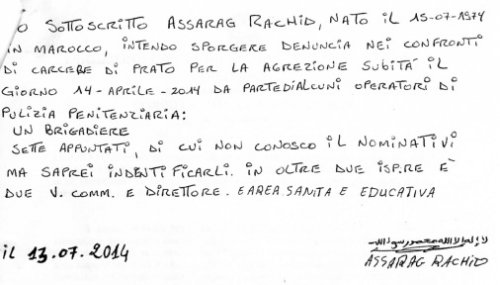 O SOTTOSCRITTO ASSARAG RACHID, NATO IL 15-07-1974
IN MAROCCO, INTENDO SPORGERE DENUNCIA NEI CONFRONTI
DI CARCERE DI PRATO PER LA AGREZIONE SUBITÀ IL
GIORNO 14-APRILE-2014 DA PARTEDIALCUNI OPERATORI DI
PULIZIA PENITENZIARIA:
UN BRIGADIERE
SETTE APPUNTATI, DI CUI NON CONOSCO IL NOMINATIVI
MA SAPREI INDENTIFICARLI. IN OLTRE DUE ISP.RE E
DUE V. COMM. E DIRETTORE. E AREA SANITA E EDUCATIVA
IL 13.07.2014
لا إله إلا الله محمد رسول الله
ASSARAG RACHID